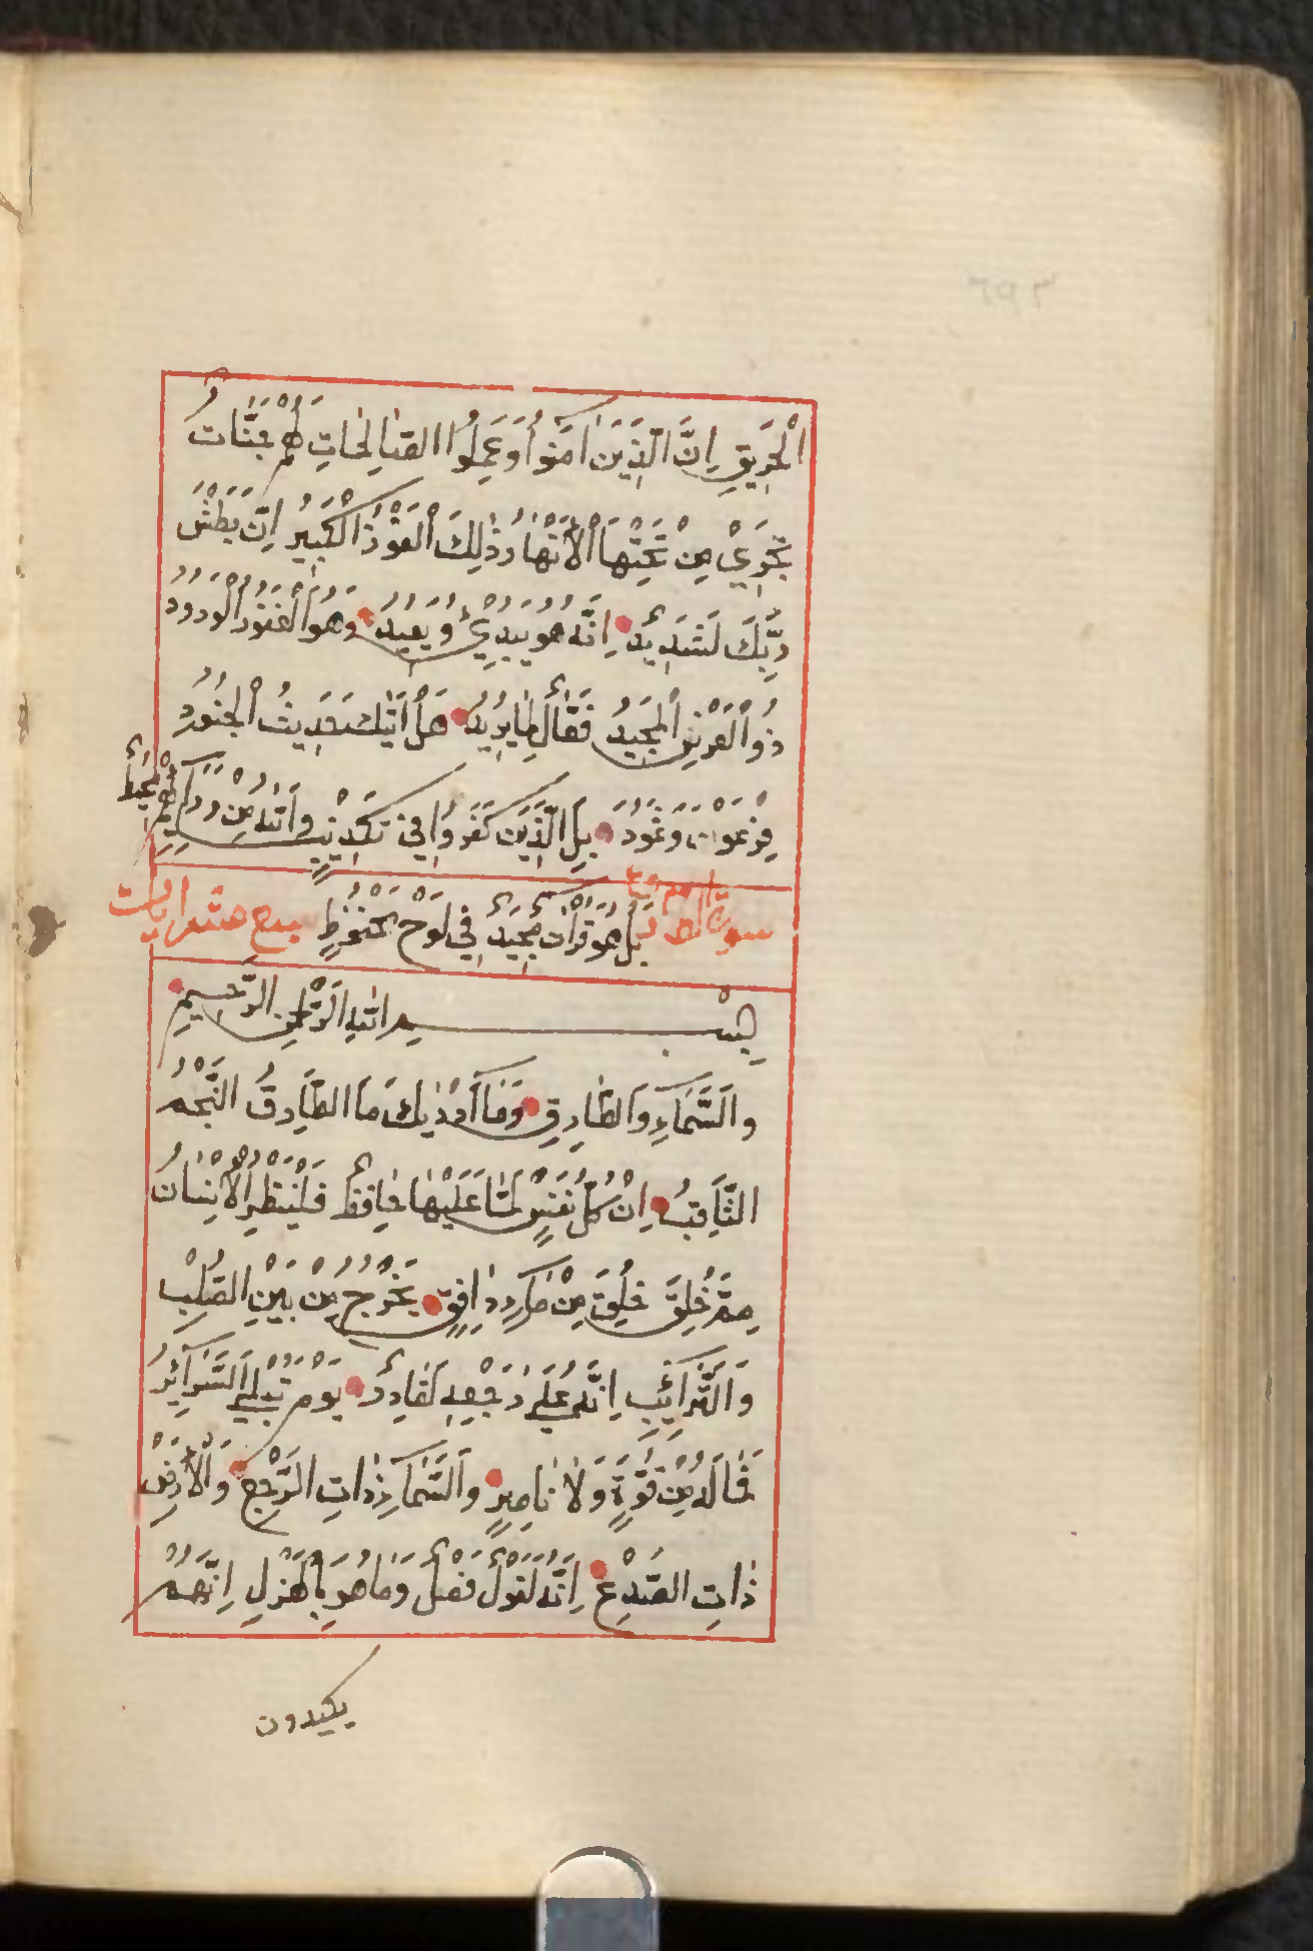 الْحَرِيقِ اِنَّ الَّذِينَ اٰمَنُوا وَعَمِلُوا الصَّالِحَاتِ لَهُمْ جَنَّاتٌ
تَجْرِيْ مِنْ تَحْتِهَا الْأَنْهَارُ ذٰلِكَ الْفَوْزُ الْكَبِيرُ اِنَّ بَطْشَ
رَبِّكَ لَشَدِيدٌ اِنَّهُ هُوَ يُبْدِئُ وَيُعِيدُ وَهُوَ الْغَفُورُ الْوَدُودُ
ذُوالْعَرْشِ الْمَجِيدُ فَعَّالٌ لِمَا يُرِيدُ هَلْ اَتٰيكَ حَدِيثُ الْجُنُودِ
فِرْعَوْنَ وَثَمُودَ بَلِ الَّذِينَ كَفَرُوا فِي تَكْذِيبٍ وَاللّٰهُ مِنْ وَرَائِهِمْ مُحِيطٌ
سورة الطارق بَلْ هُوَ قُرْاٰنٌ مَجِيدٌ فِي لَوْحٍ مَحْفُوظٍ سبع عشر ايات
بِسْـــــمِ اللّٰهِ الرَّحْمٰنِ الرَّحِيمِ
وَالسَّمَاءِ وَالطَّارِقِ وَمَا اَدْرٰيكَ مَا الطَّارِقُ النَّجْمُ
الثَّاقِبُ اِنْ كُلُّ نَفْسٍ لَمَّا عَلَيْهَا حَافِظٌ فَلْيَنْظُرِ الْاِنْسَانُ
مِمَّ خُلِقَ خُلِقَ مِنْ مَاءٍ دَافِقٍ يَخْرُجُ مِنْ بَيْنِ الصُّلْبِ
وَالتَّرَائِبِ اِنَّهُ عَلٰى رَجْعِهِ لَقَادِرٌ يَوْمَ تُبْلَى السَّرَائِرُ
فَمَا لَهُ مِنْ قُوَّةٍ وَلَا نَاصِرٍ وَالسَّمَاءِ ذَاتِ الرَّجْعِ وَالْاَرْضِ
ذَاتِ الصَّدْعِ اِنَّهُ لَقَوْلٌ فَصْلٌ وَمَا هُوَ بِالْهَزْلِ اِنَّهُمْ
يكيدون